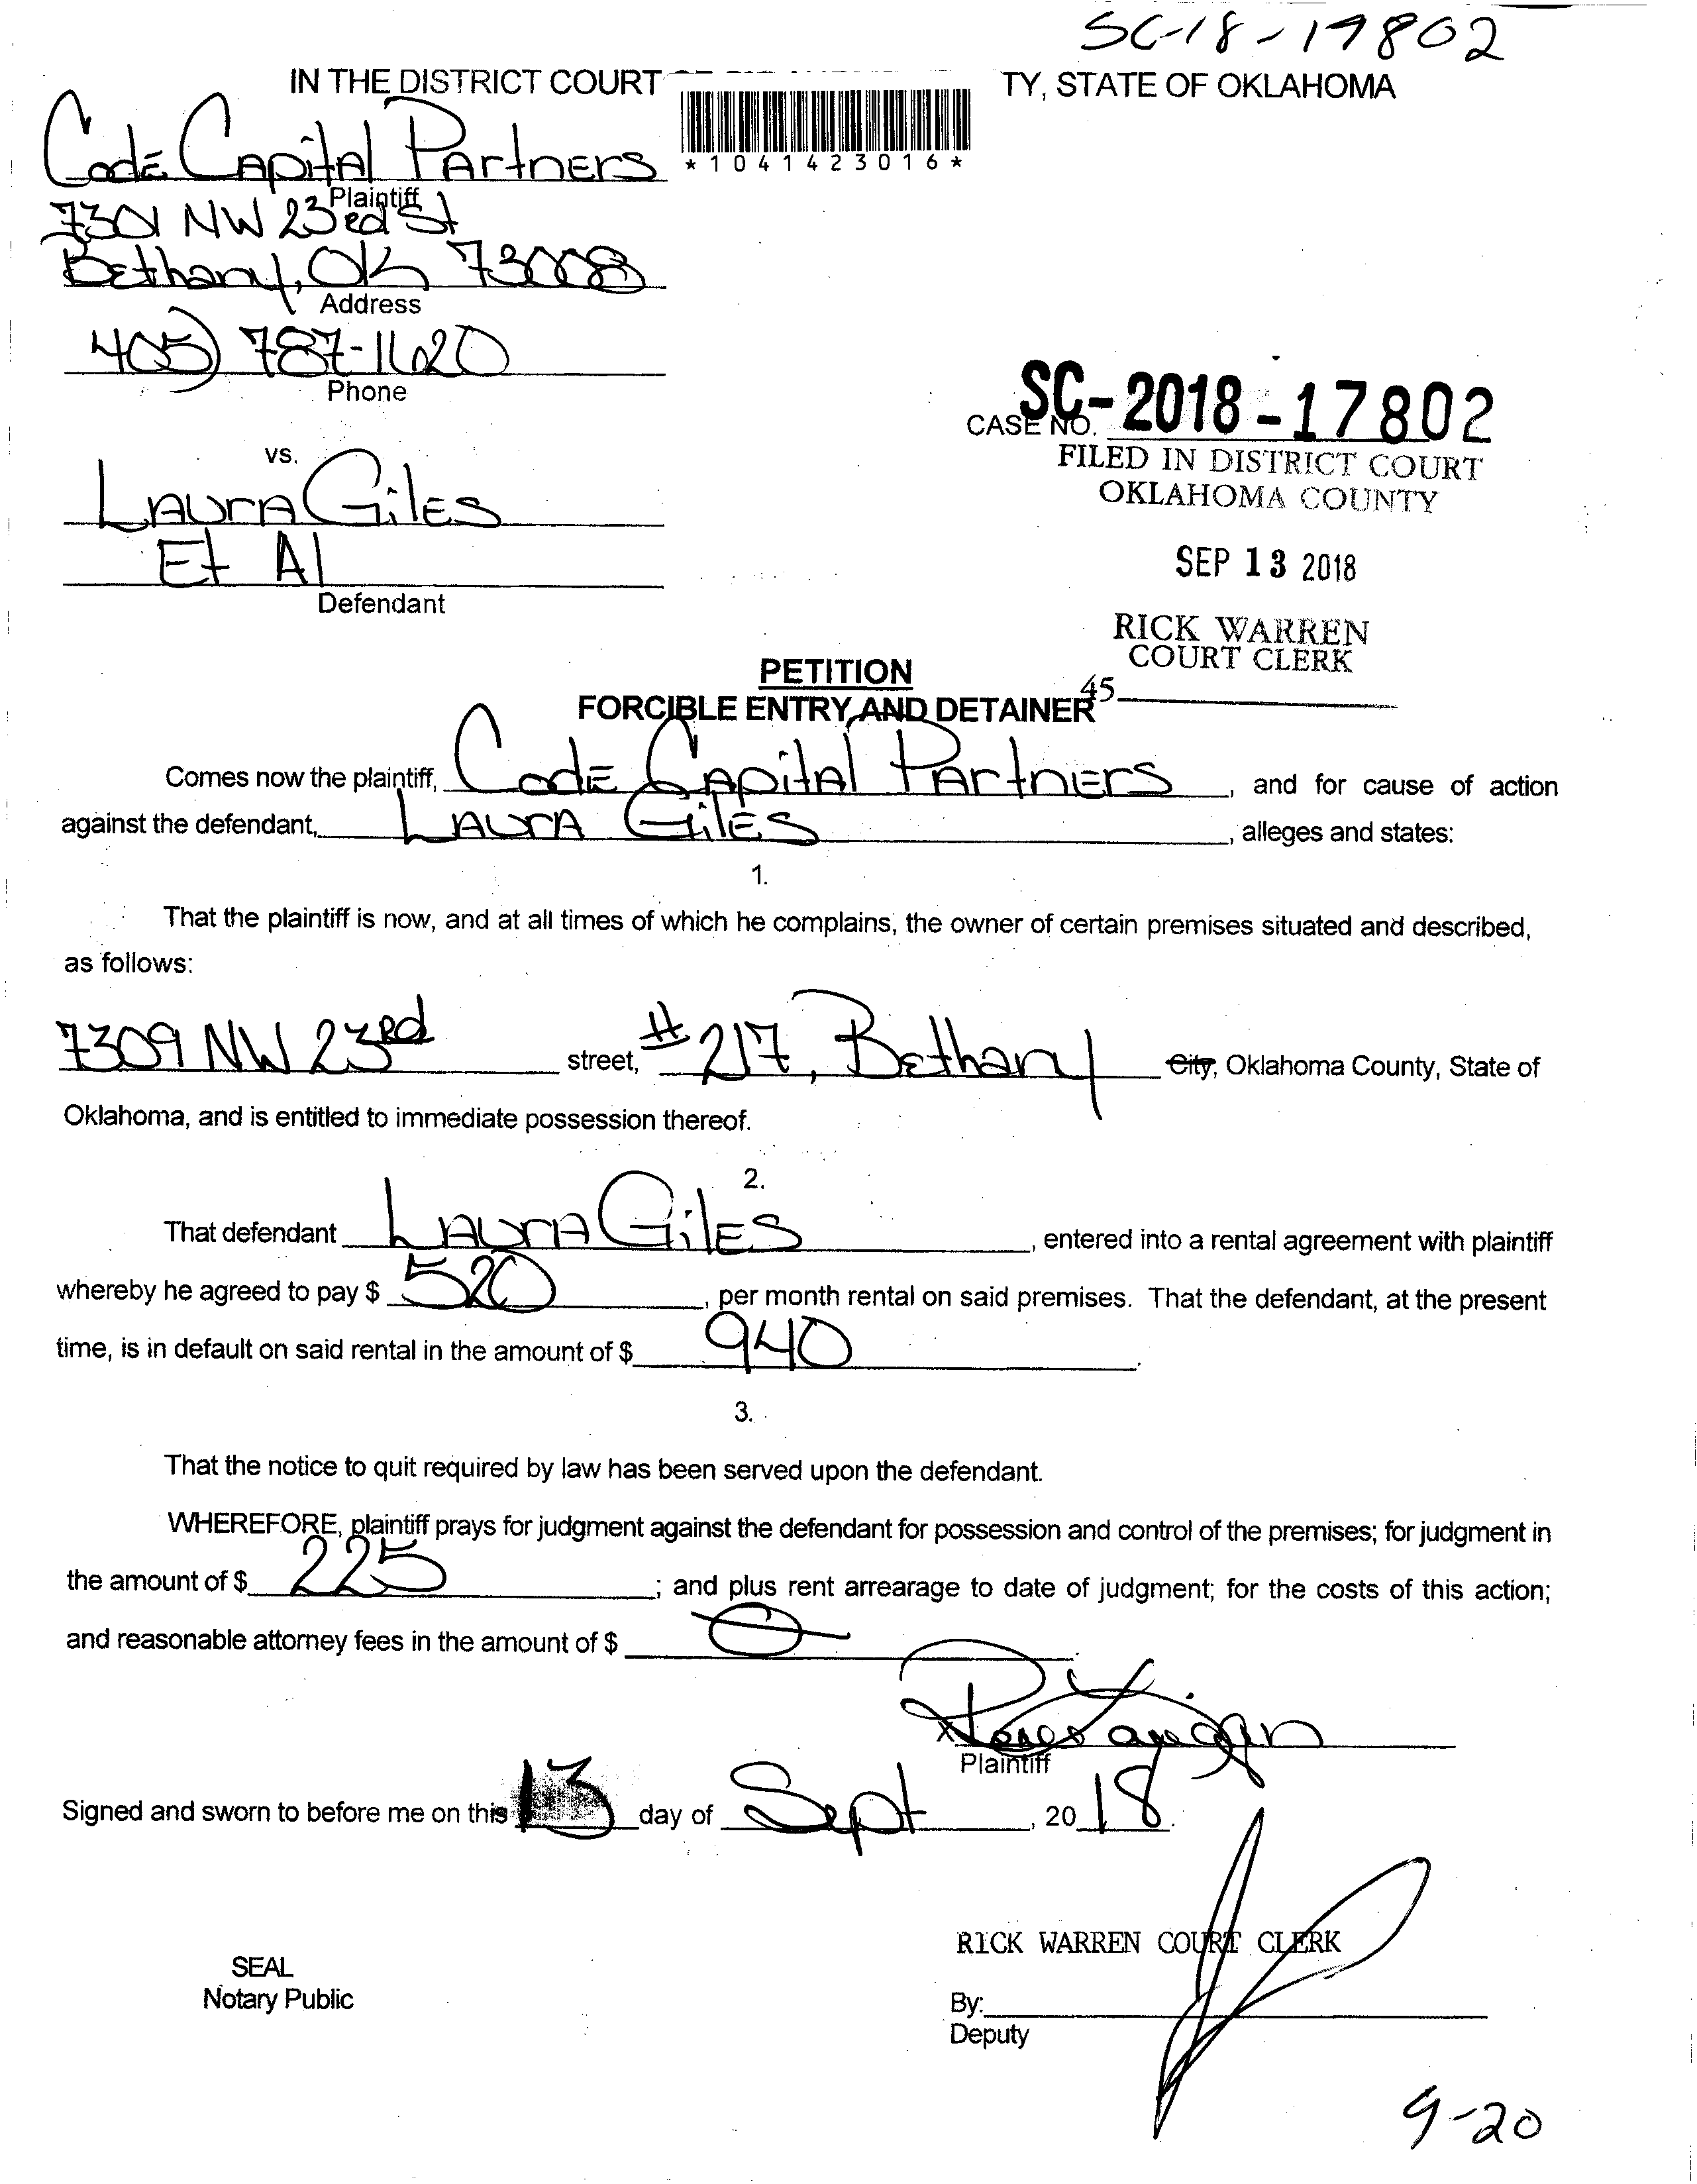 SC-18-17802
IN THE DISTRICT COURT TY, STATE OF OKLAHOMA
*1041423016*
Code Capital Partners
Plaintiff
7301 NW 23rd St
Bethany, Ok 73008
Address
405) 787-1620
Phone
SC-2018-17802
CASE NO.
FILED IN DISTRICT COURT
OKLAHOMA COUNTY
vs.
Laura Giles
Et Al
Defendant
SEP 13 2018
RICK WARREN
COURT CLERK
45
PETITION
FORCIBLE ENTRY AND DETAINER
Comes now the plaintiff, Code Capital Partners, and for cause of action
against the defendant, Laura Giles, alleges and states:
1.
That the plaintiff is now, and at all times of which he complains, the owner of certain premises situated and described,
as follows:
7309 NW 23rd street, #217, Bethany City, Oklahoma County, State of
Oklahoma, and is entitled to immediate possession thereof.
2.
That defendant Laura Giles, entered into a rental agreement with plaintiff
whereby he agreed to pay $ 520, per month rental on said premises. That the defendant, at the present
time, is in default on said rental in the amount of $ 940.
3.
That the notice to quit required by law has been served upon the defendant.
WHEREFORE, plaintiff prays for judgment against the defendant for possession and control of the premises; for judgment in
the amount of $ 225; and plus rent arrearage to date of judgment; for the costs of this action;
and reasonable attorney fees in the amount of $ 0.
x
Plaintiff
Signed and sworn to before me on this 13 day of Sept, 2018.
RICK WARREN COURT CLERK
SEAL
Notary Public
By:
Deputy
9-20